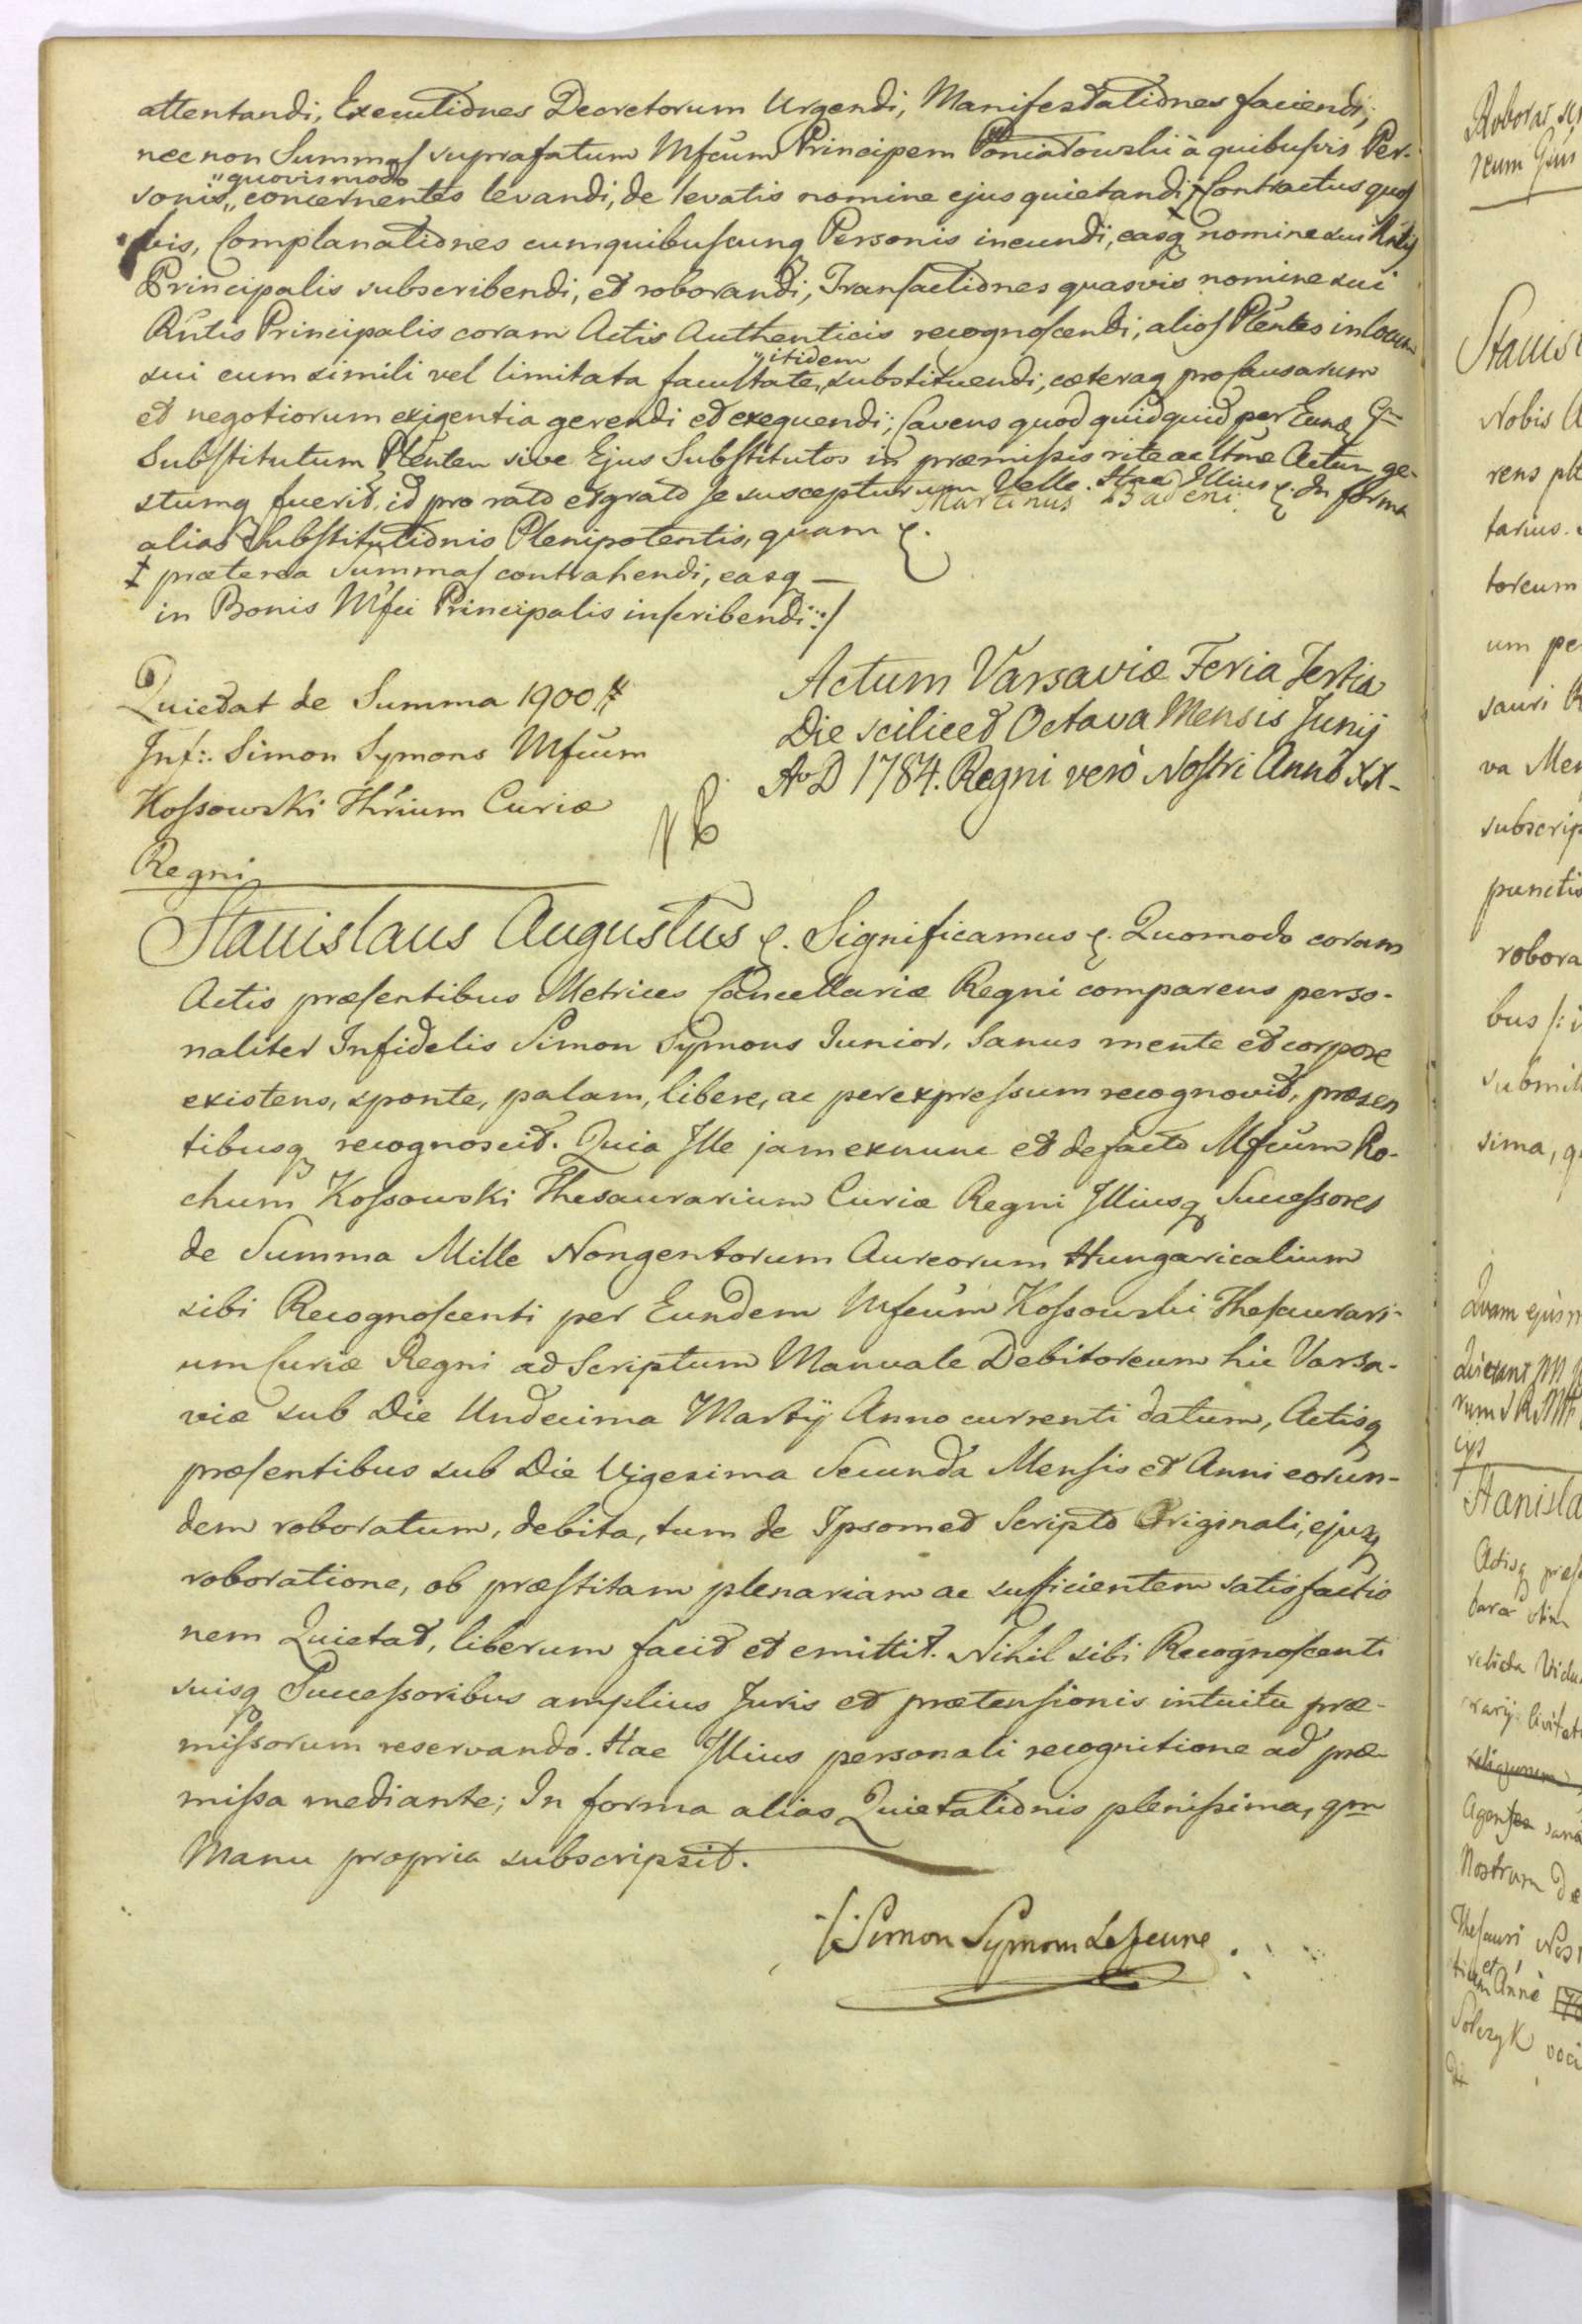 attentandi, Executiones Decretorum Urgendi, Manifestationes faciendi,
nec non Summas suprafatum Mfcum Principem Poniatowski à quibusvis Per-
sonis, "quovismodo" concernentes levandi, de levatis nomine ejus quietandi; ‡ Contractus quos
vis, Complanationes cum quibuscunq Personis ineundi, easq nomine sui Rntis
Principalis subscribendi, et roborandi, Transactiones quasvis nomine sui
Rntis Principalis coram Actis Authenticis recognoscendi, alios Plentes in locum
sui cum simili vel limitata facultate "itidem" substituendi, cæteraq pro Causarum
et negotiorum exigentia gerendi et exequendi; Cavens quod quidquid per Eund Gn
Substitutum Plenten sive Ejus Substitutos in præmissis rite ac ltme Actum ge-
stumq fuerit, id pro rato et grato se suscepturum Velle. Hac Illius &. In forma
Martinus Badeni
alias Substitutionis Plenipotentis, quam &.
‡ præterea Summas contrahendi, easq —
in Bonis Mfci Principalis inscribendi :/
Quietat de Summa 1900 #
Inf: Simon Symons Mfcum
Kossowski Thrium Curiæ
Regni
Actum Varsaviæ Feria Tertia
Die scilicet Octava Mensis Junij
AoD 1784. Regni verò Nostri Anno XX-
Stanislaus Augustus &. Significamus &. Quomodo coram
Actis præsentibus Metrices Cancellariæ Regni comparens perso-
naliter Infidelis Simon Symons Junior, Sanus mente et corpore
existens, sponte, palam, libere, ac per expressum recognovit, præsen
tibusq recognoscit. Quia Ille jam exnunc et de facto Mfcum Ro-
chum Kossowski Thesaurarium Curiæ Regni Illiusq Successores
de Summa Mille Nongentorum Aureorum Hungaricalium
sibi Recognoscenti per Eundem Mfcum Kossowski Thesaurari-
um Curiæ Regni ad Scriptum Manuale Debitoreum hic Varsa-
viæ sub Die Undecima Martij Anno currenti datum, Actisq
præsentibus sub Die Vigesima Secunda Mensis et Anni eorun-
dem roboratum, debita, tum de Ipsomet Scripto Originali, ejusq
roboratione, ob præstitam plenariam ac sufficientem satisfactio
nem Quietat, liberum facit et emittit. Nihil sibi Recognoscenti
suisq Successoribus amplius Juris et prætensionis intuitu præ-
missorum reservando. Hac Illius personali recognitione ad præ-
missa mediante; In forma alias Quietationis plenissima, qm
Manu propria subscripsit.
/: Simon Symons Le Jeune